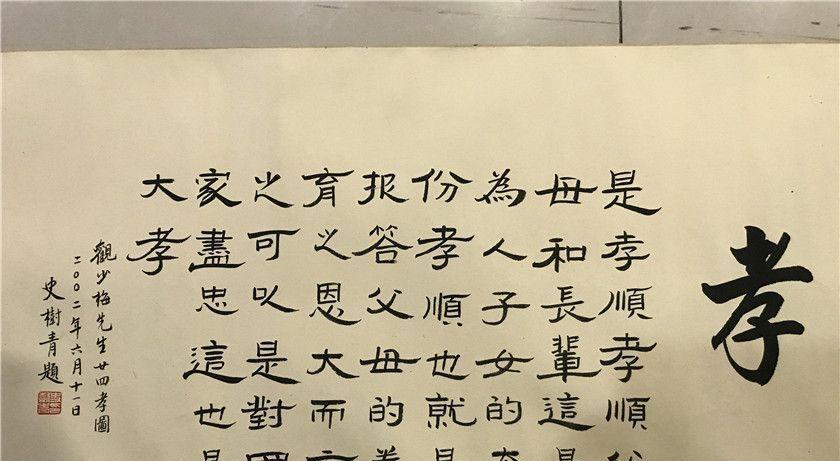 孝
是孝順孝順
母和長輩這
為人子女的
份孝順也就
报答父母的
育之恩大而
之可以是對
家盡忠這也
大孝
觀少梅先生廿四孝圖
二〇〇二年六月十一日
史樹青題